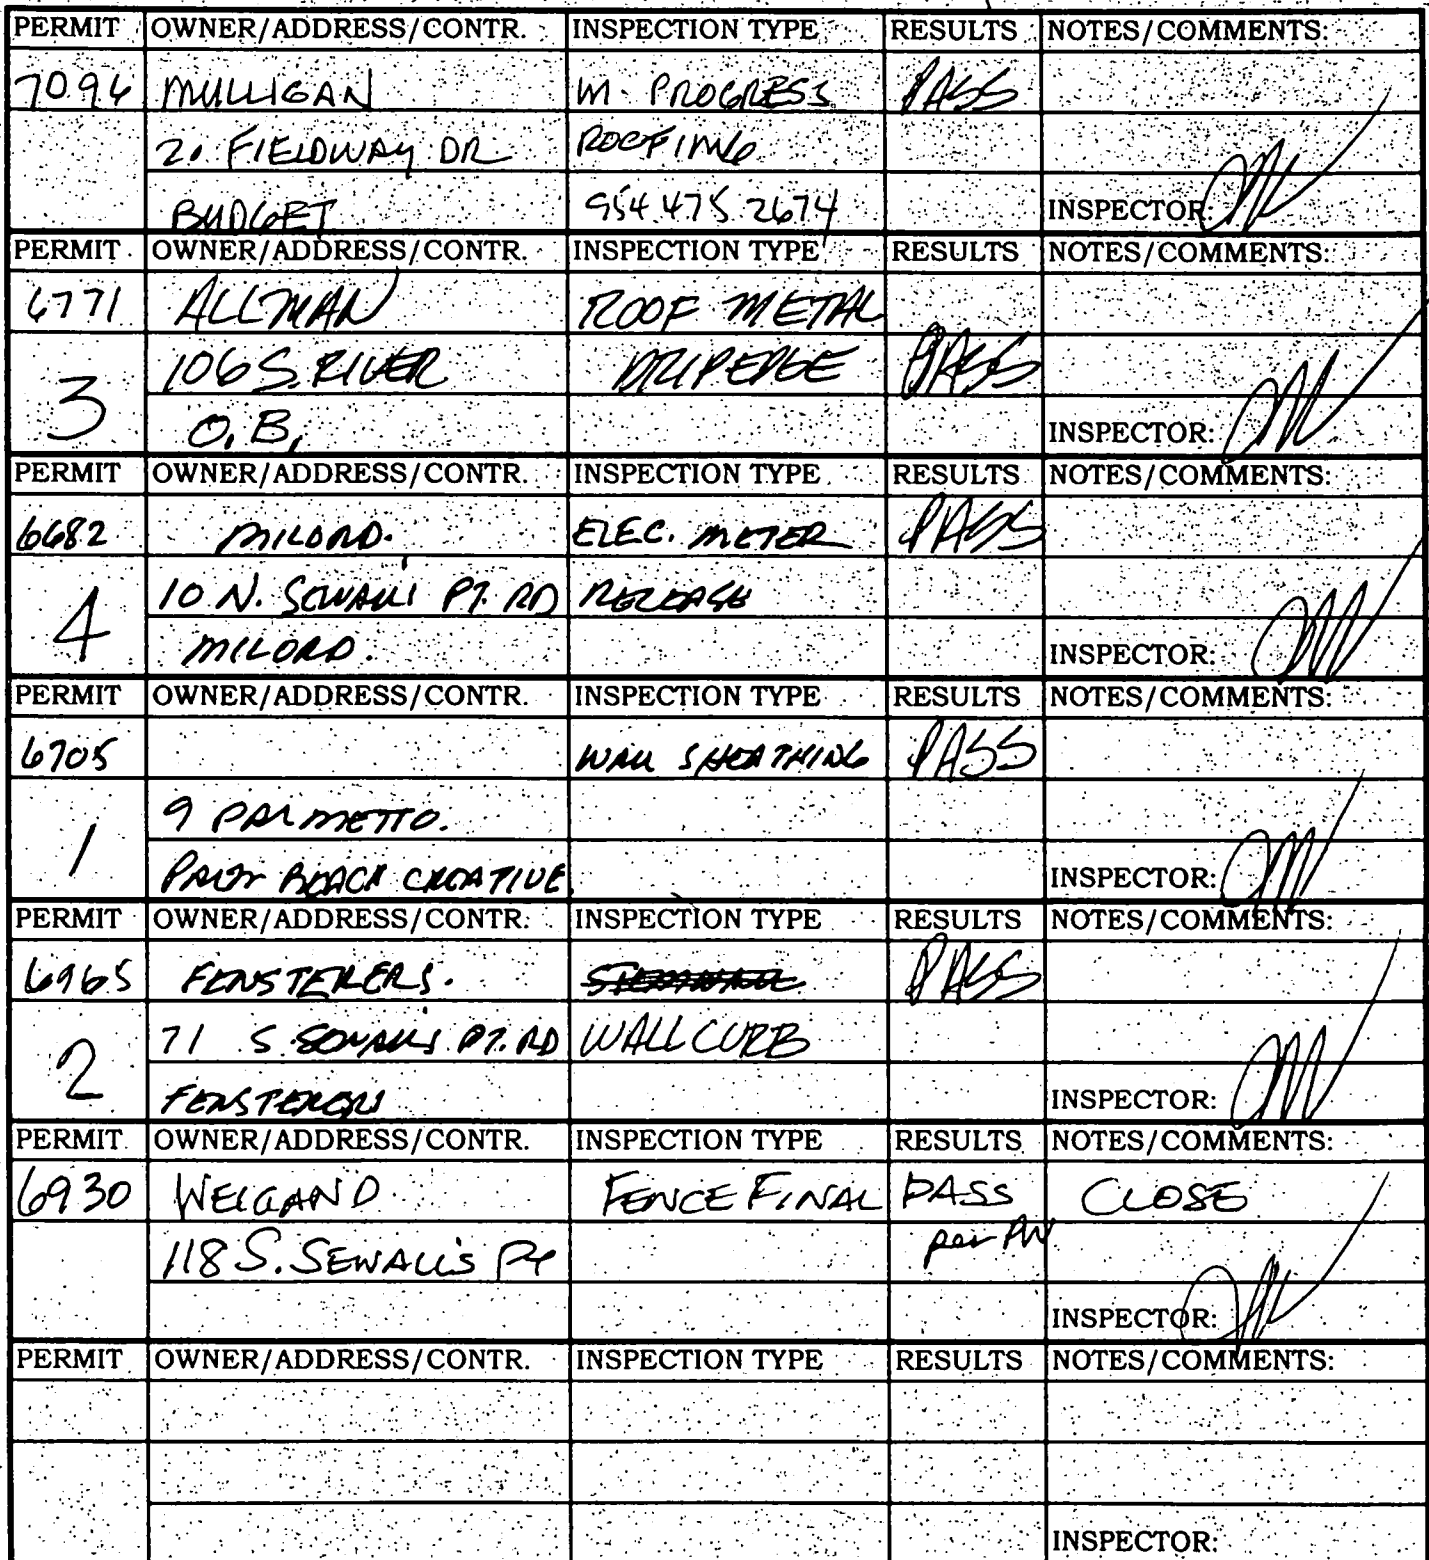 PERMIT OWNER/ADDRESS/CONTR. INSPECTION TYPE RESULTS NOTES/COMMENTS:
7096 MULLIGAN IN PROGRESS PASS
20 FIELDWAY DR ROOFING
BUDGET 954.475.2674 INSPECTOR:
PERMIT OWNER/ADDRESS/CONTR. INSPECTION TYPE RESULTS NOTES/COMMENTS:
6771 ALLMAN ROOF METAL
3 106 S. RIVER DRIPEDGE PASS
O.B. INSPECTOR:
PERMIT OWNER/ADDRESS/CONTR. INSPECTION TYPE RESULTS NOTES/COMMENTS:
6682 MILORD. ELEC. METER PASS
4 10 N. SEWALL'S PT. RD RELEASE
MILORD. INSPECTOR:
PERMIT OWNER/ADDRESS/CONTR. INSPECTION TYPE RESULTS NOTES/COMMENTS:
6705 WALL SHEATHING PASS
1 9 PALMETTO.
PALM BEACH CREATIVE INSPECTOR:
PERMIT OWNER/ADDRESS/CONTR. INSPECTION TYPE RESULTS NOTES/COMMENTS:
6965 FENSTERERS. PASS
2 71 S. SEWALL'S PT. RD WALL CURB
FENSTERERS INSPECTOR:
PERMIT OWNER/ADDRESS/CONTR. INSPECTION TYPE RESULTS NOTES/COMMENTS:
6930 WEIGAND FENCE FINAL PASS CLOSE
118 S. SEWALL'S PT per
INSPECTOR:
PERMIT OWNER/ADDRESS/CONTR. INSPECTION TYPE RESULTS NOTES/COMMENTS:
INSPECTOR: